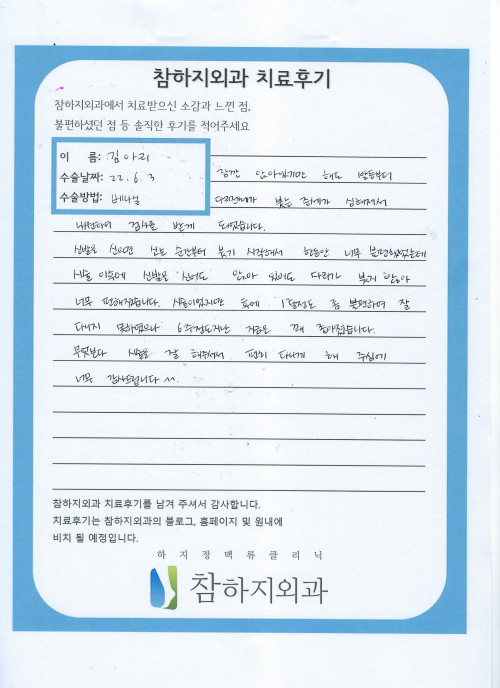 참하지외과 치료후기
참하지외과에서 치료받으신 소감과 느낀 점,
불편하셨던 점 등 솔직한 후기를 적어주세요
이 름: 김아리
수술날짜: 22. 6. 3
수술방법: 베나실
잠깐 앉아있기만 해도 발등부터
다리전체가 붓는 증세가 심해져서
내원하여 검사를 받게 되었습니다.
신발을 신으면 신는 순간부터 붓기 시작해서 한동안 너무 불편했었는데
시술 이후에 신발을 신어도 앉아 있어도 다리가 붓지 않아
너무 편해졌습니다. 시술이었지만 후에 1달정도 좀 불편하며 잘
다니지 못하였으나 6주정도지난 지금은 꽤 좋아졌습니다.
무엇보다 시술을 잘 해주셔서 편히 다니게 해 주심에
너무 감사드립니다 ^^.
참하지외과 치료후기를 남겨 주셔서 감사합니다.
치료후기는 참하지외과의 블로그, 홈페이지 및 원내에
비치 될 예정입니다.
하지정맥류클리닉
참하지외과